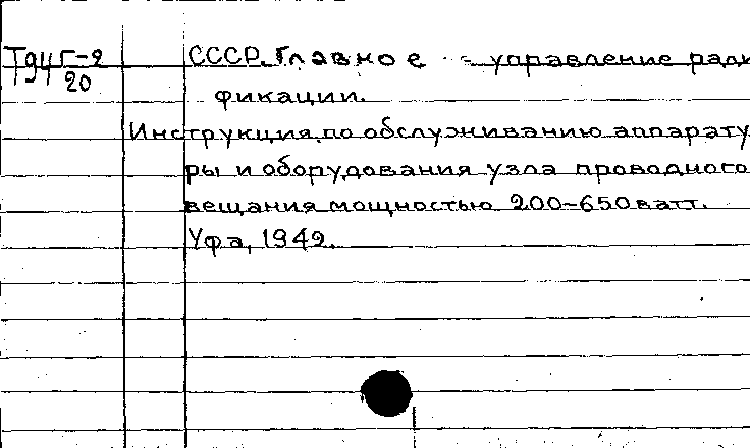 Т94 Г-2 СССР. Главное управление ради
20
фикации.
Инструкция по обслуживанию аппарату
ры и оборудования узла проводного
вещания мощностью 200-650 ватт.
Уфа, 1942.